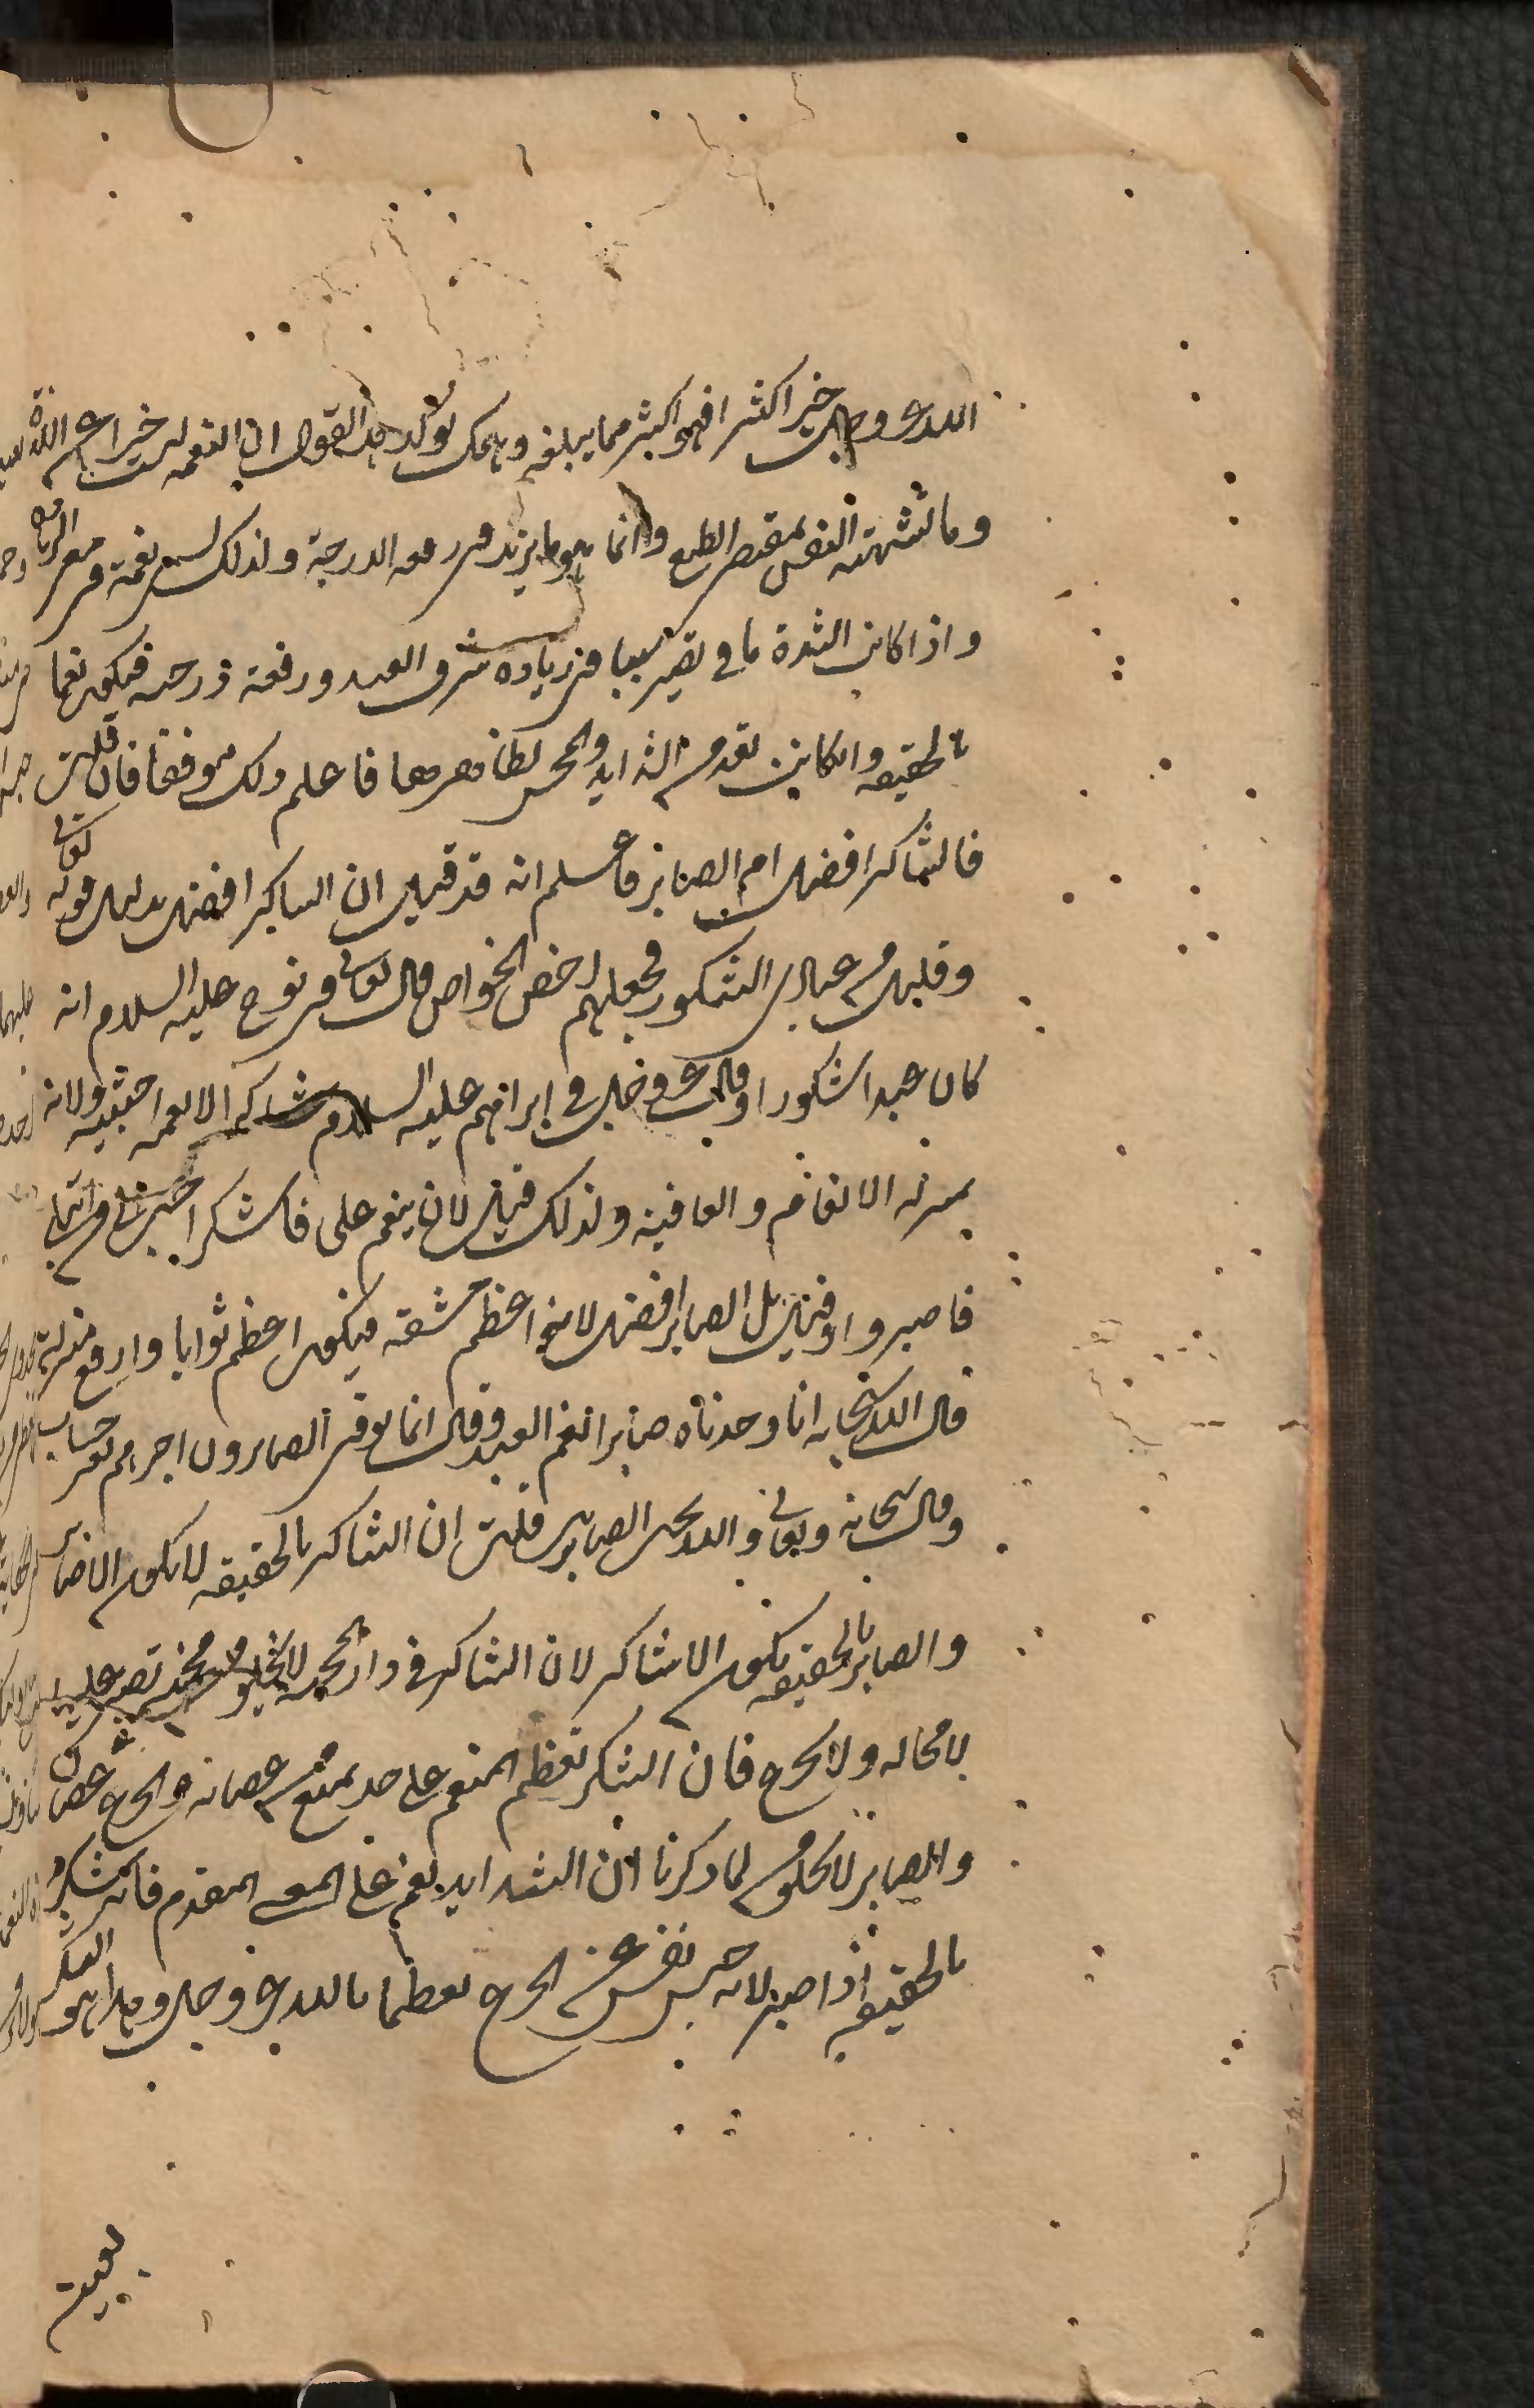 الله عز وجل خيرا كثيرا فهو اكثر مما يبلغه وهمك يوكد هذا القول ان النعمة ليست خيرا عن اللذة
وما تشتهيه النفس بمقتضى الطبع وانما هو ما يزيد في رفعة الدرجة ولذلك تسمى نعمة في معنى الزيادة
واذا كانت الشدة مما تصير سببا في زيادة شرف العبد ورفعة درجته فيكون نعما
بالحقيقة وان كانت تعد من الشدايد والمحن بظاهرها فاعلم ذلك موفقا فان قلت
فالشاكر افضل ام الصابر فاعلم انه قد قيل ان الشاكر افضل بدليل قوله تعالى
وقليل من عبادي الشكور فجعلهم اخص الخواص قال تعالى في نوح عليه السلام انه
كان عبدا شكورا وقال عز وجل في ابراهيم عليه السلام شاكرا لانعمه اجتبيه ولانه
بمنزلة الانعام والعافية ولذلك قيل لان ينعم علي فاشكر احب الي من ان ابتلى
فاصبر وقيل بل الصابر افضل لانه اعظم مشقة فيكون اعظم ثوابا وارفع منزلة
قال الله سبحانه انا وجدناه صابرا نعم العبد وقال انما يوفى الصابرون اجرهم بغير حساب
وقال سبحانه وتعالى والله يحب الصابرين قلت ان الشاكر بالحقيقة لا يكون الا صابر
والصابر بالحقيقة لا يكون الا شاكر لان الشاكر في دار المحنة لا يخلو من محنة يصبر عليها
لا محالة ولا يجزع فان الشكر تعظيم المنعم على حد يمنع من عصيانه والجزع عصيان
والصابر لا يخلو من لما ذكرنا ان الشدايد نعم على المعنى المقدم فانه شكر
بالحقيقة اذا صبر لانه حبس نفسه عن الجزع تعظيما بالله عز وجل وهذا هو الشكر
بعينه